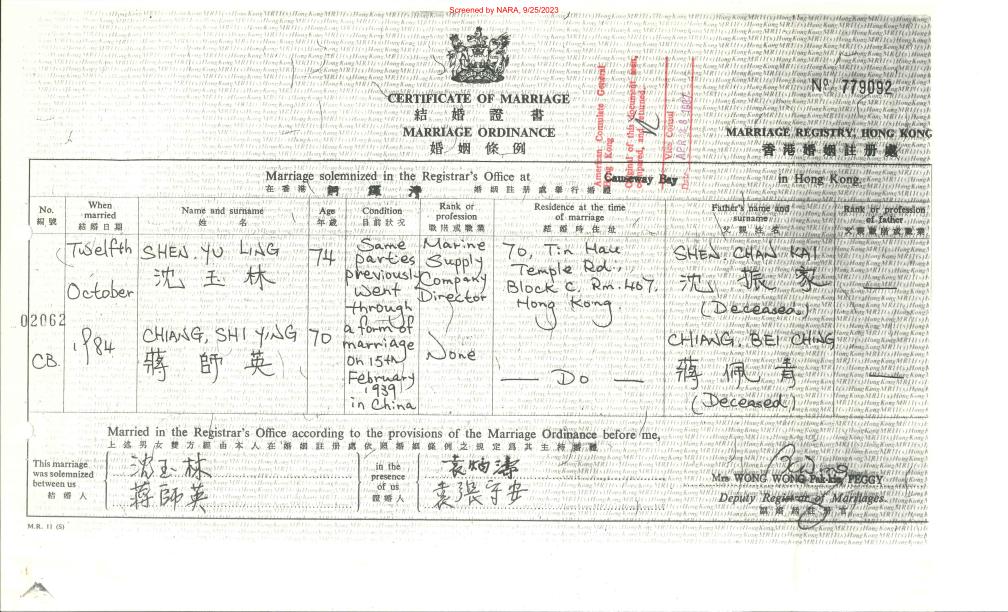 Screened by NARA, 9/25/2023
CERTIFICATE OF MARRIAGE
結婚證書
MARRIAGE ORDINANCE
婚姻條例
Nº 779092
MARRIAGE REGISTRY, HONG KONG
香港婚姻註册處
American Consulate General
Hong Kong
Original of this document seen,
compared, and returned.
Vice Consul
Date APR 28 1987
Marriage solemnized in the Registrar's Office at Causeway Bay in Hong Kong.
在香港 婚姻註册處舉行婚禮
No.
編號
When married
結婚日期
Name and surname
姓名
Age
年歲
Condition
目前狀況
Rank or profession
職階或職業
Residence at the time of marriage
結婚時住址
Father's name and surname
父親姓名
Rank or profession of father
父親職階或職業
02062
CB.
Twelfth
October
1984
SHEN, YU LING
沈玉林
74
Same
parties
previously
went
through
a form of
marriage
on 15th
February
1939
in China
Marine
Supply
Company
Director
70, Tin Hau
Temple Rd.,
Block C, Rm. 407,
Hong Kong
SHEN, CHAN KAI
沈振家
(Deceased)
—
CHIANG, SHI YING
蔣師英
70
None
— Do —
CHIANG, BEI CHING
蔣佩青
(Deceased)
—
Married in the Registrar's Office according to the provisions of the Marriage Ordinance before me,
上述男女雙方經由本人在婚姻註册處依照婚姻條例之規定爲其主持婚禮
This marriage
was solemnized
between us
結婚人
沈玉林
蔣師英
in the
presence
of us
證婚人
袁炳濤
袁張守安
Mrs WONG WONG Pak-king PEGGY
Deputy Registrar of Marriages
M.R. 11 (S)